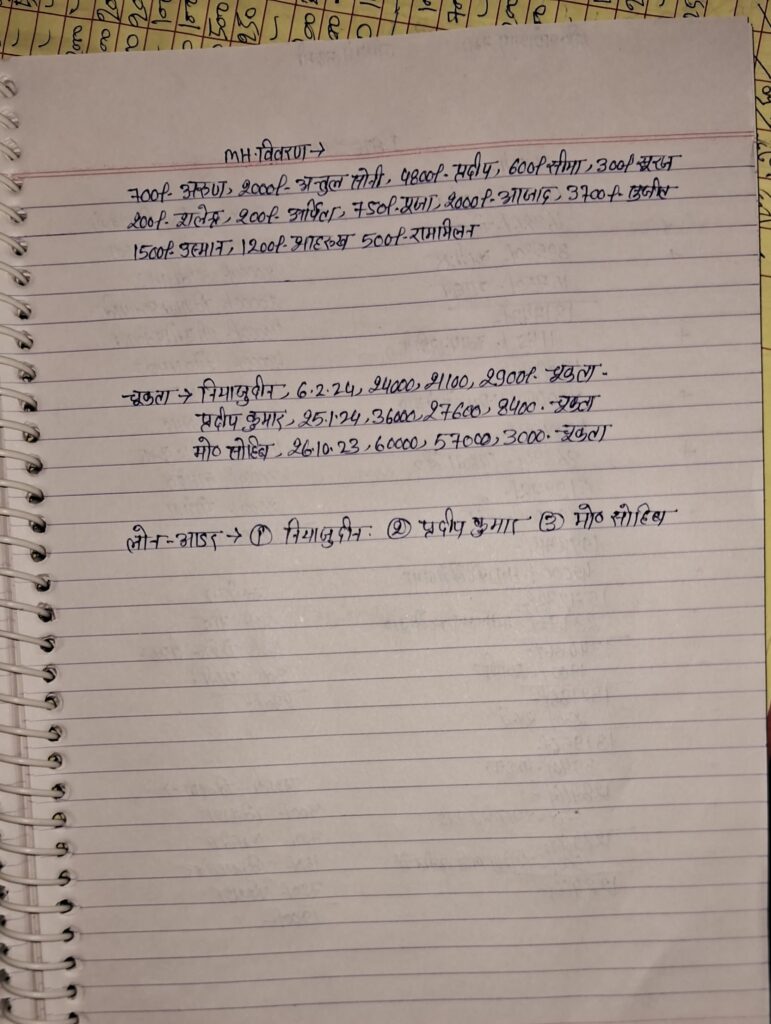 MH.विवरण→
700/- अरुण, 2000/- अतुल सोनी, 4800/- प्रदीप, 600/-सीमा, 300/-सूरज
200/- शलेन्द्र, 200/- अर्पिता, 750/-पूजा, 2000/- आजाद, 3700/-
1500/-उस्मान, 1200/-शाहरुख 500/-राममिलन
चूकता → नियाजुद्दीन, 6.2.24, 24000, 21100, 2900/- चूकता -
प्रदीप कुमार, 25.1.24, 36000, 27600, 8400. चूकता
मो० सोहिब, 26.10.23, 60000, 57000, 3000. चूकता
लोन-आडर → ① नियाजुद्दीन. ② प्रदीप कुमार ③ मो० सोहिब